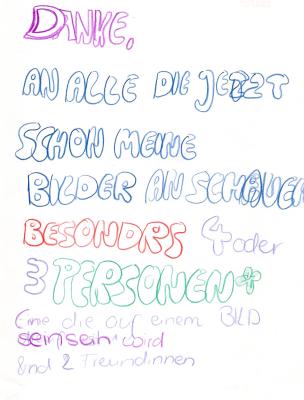 DANKE,
AN ALLE DIE JETZT
SCHON MEINE
BILDER AN SCHAUEN
BESONDRS 4 oder
3 PERSONEN*
Eine die auf einem BILD
sein wird
und 2 Freundinnen